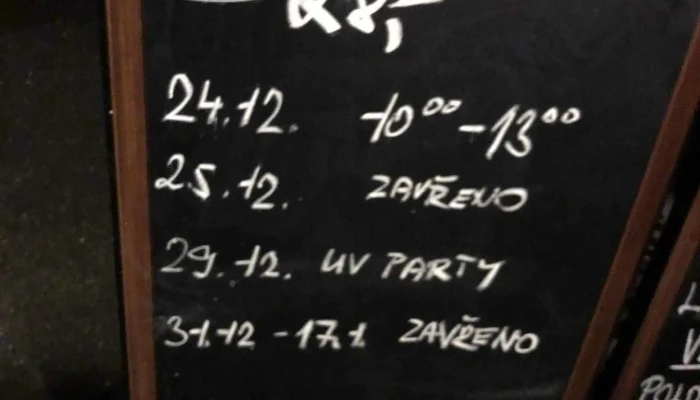 28,-
24.12. 10⁰⁰-13⁰⁰
25.12. ZAVŘENO
29.12. UV PARTY
31.12 - 17.1. ZAVŘENO